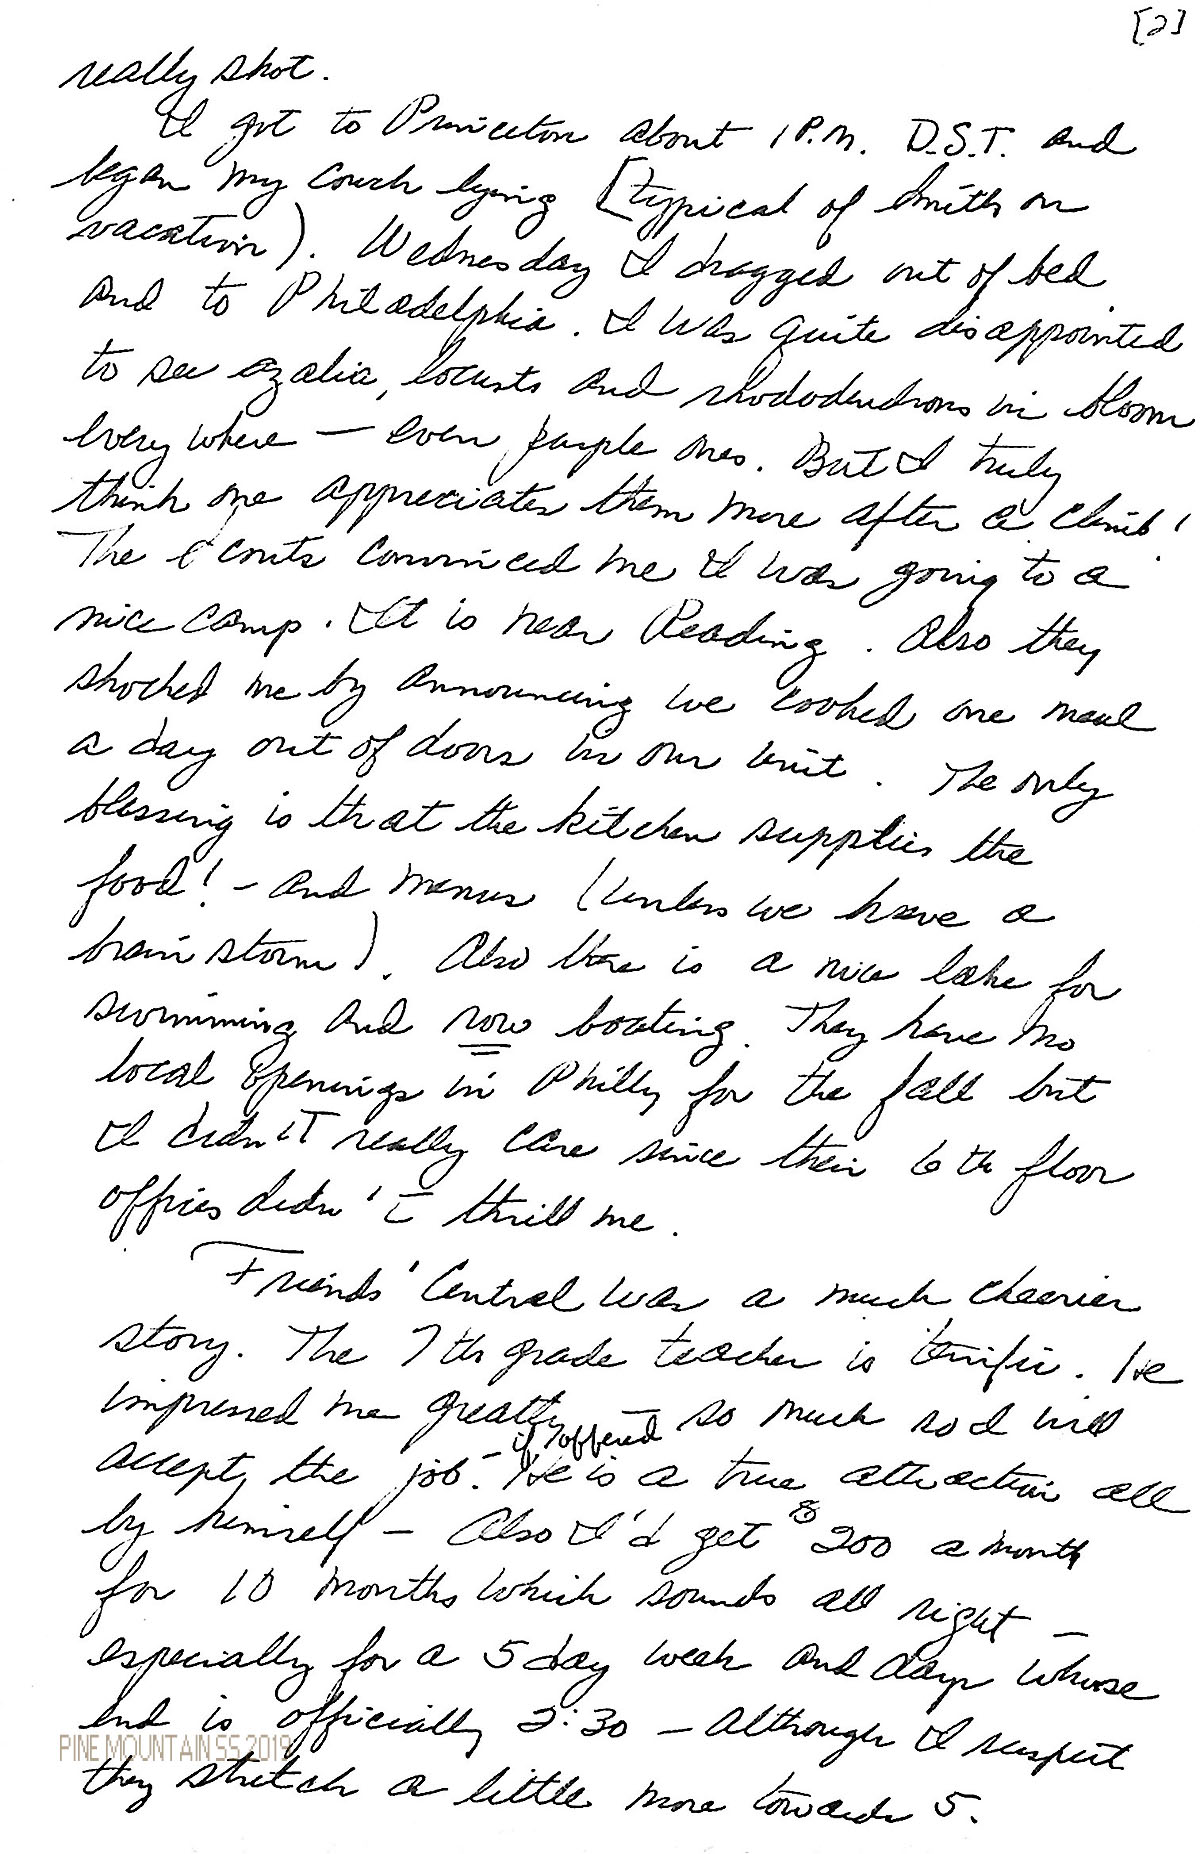 [2]
really shot.
I got to Princeton about 1 P.M. D.S.T. and
began my couch lying [typical of Smith on
vacation). Wednesday I dragged out of bed
and to Philadelphia. I was quite disappointed
to see azalia, locusts and rhododendrons in bloom
everywhere — even purple ones. But I truly
think one appreciates them more after a climb!
The Scouts convinced me I was going to a
nice camp. It is near Reading. Also they
shocked me by announcing we cooked one meal
a day out of doors in our unit. The only
blessing is that the kitchen supplies the
food! - and menus (unless we have a
brain storm). Also there is a nice lake for
swimming and row boating. They have no
local openings in Philly for the fall but
I didn't really care since their 6th floor
offices didn't thrill me.
Friends' Central was a much cheerier
story. The 7th grade teacher is terrific. He
impressed me greatly — so much so I will
accept the job - if offered He is a true attraction all
by himself — Also I'd get $200 a month
for 10 months which sounds all right —
especially for a 5 day week and days whose
end is officially 3:30 — although I suspect
they stretch a little more towards 5.
PINE MOUNTAIN SS 2019